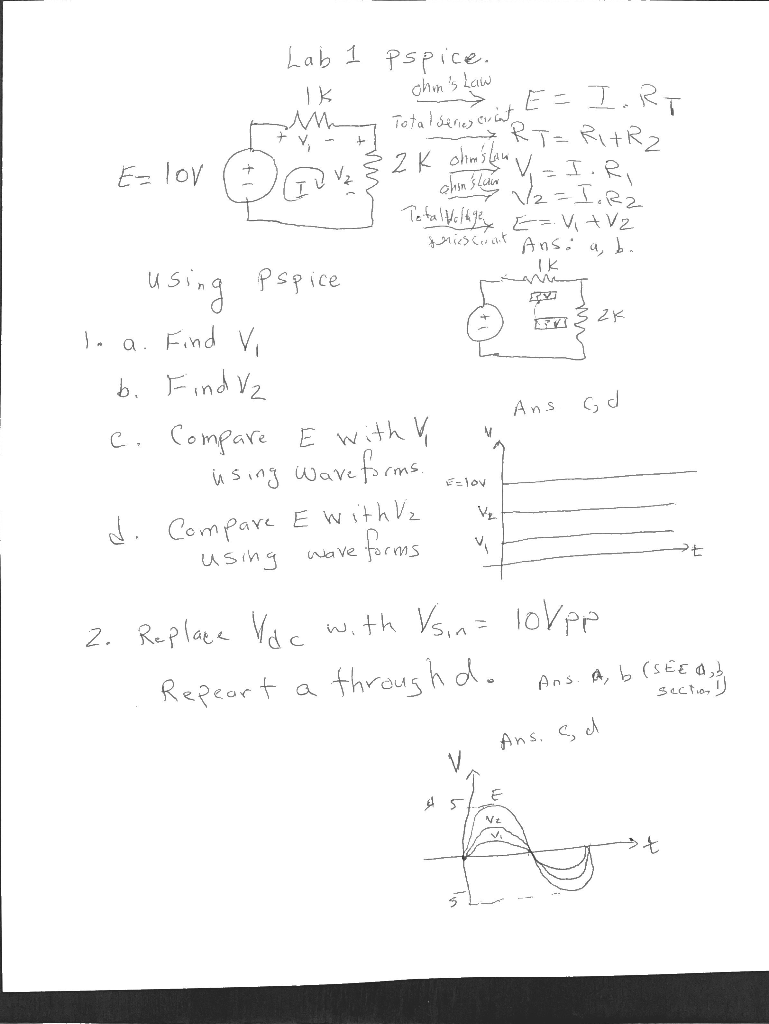 Lab 1 pspice.
1K
ohm's Law E = I . RT
Total series circuit RT = R1 + R2
+ V1 - +
E = 10V
+
-
I
V2
-
2K
ohm's law V1 = I . R1
ohm's law V2 = I . R2
Total Voltage E = V1 + V2
series circuit Ans: a, b.
using Pspice
1K
?V
?V
+
-
2K
1. a. Find V1
b. Find V2
c. Compare E with V1
using waveforms.
d. Compare E with V2
using wave forms
Ans c, d
V
E=10V
V2
V1
t
2. Replace Vdc with Vsin = 10Vpp
Repeart a through d.
Ans. A, b (SEE a, b
section 1)
Ans. c, d
V
5
E
V2
V1
t
5